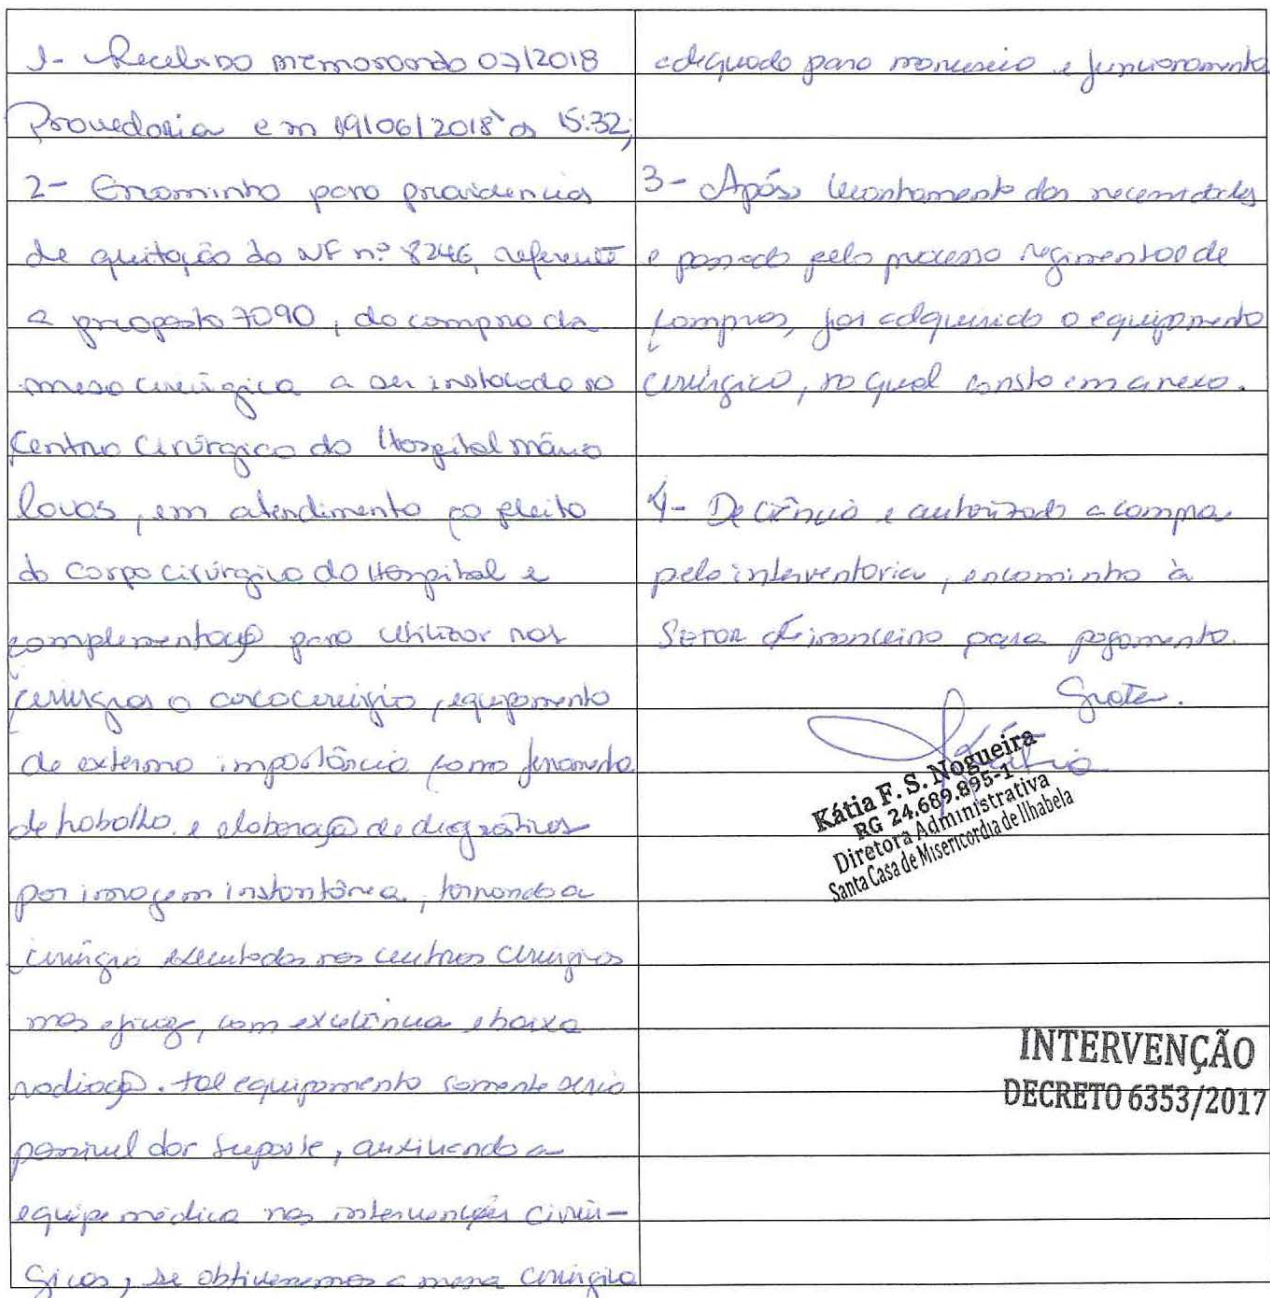 1- Recebido memorando 07/2018
Provedoria em 19/06/2018 às 15:32;
2- Encaminho para providencias
de quitação da NF nº 8246, referente
a proposta 7090, da compra da
mesa cirúrgica a ser instalada no
Centro Cirúrgico do Hospital Mário
Covas, em atendimento ao pleito
do corpo cirúrgico do Hospital e
complementação para utilizar nas
cirurgias o , equipamento
de extermo importância como ferramenta
de trabalho e elaboração de diagnósticos
por imagem instantânea, tornando a
cirurgia executadas nos centros cirúrgicos
mas eficaz, com excelência e baixa
radiação. tal equipamento somente seria
possivel dar suporte, auxiliando a
equipe médica nas intervenções cirúr-
gicas, se obtivermos a mesa cirúrgica
adequado para manuseio e funcionamento
3- Após levantamento das necessidades
e passado pelo processo regimental de
compras, foi adquirido o equipamento
cirúrgico, no qual consta em anexo.
4- De ciência e autorizado a compra
pela interventoria, encaminho à
SETOR Financeiro para pagamento.
Grata.
Kátia
Kátia F. S. Nogueira
RG 24.689.895-1
Diretora Administrativa
Santa Casa de Misericordia de Ilhabela
INTERVENÇÃO
DECRETO 6353/2017